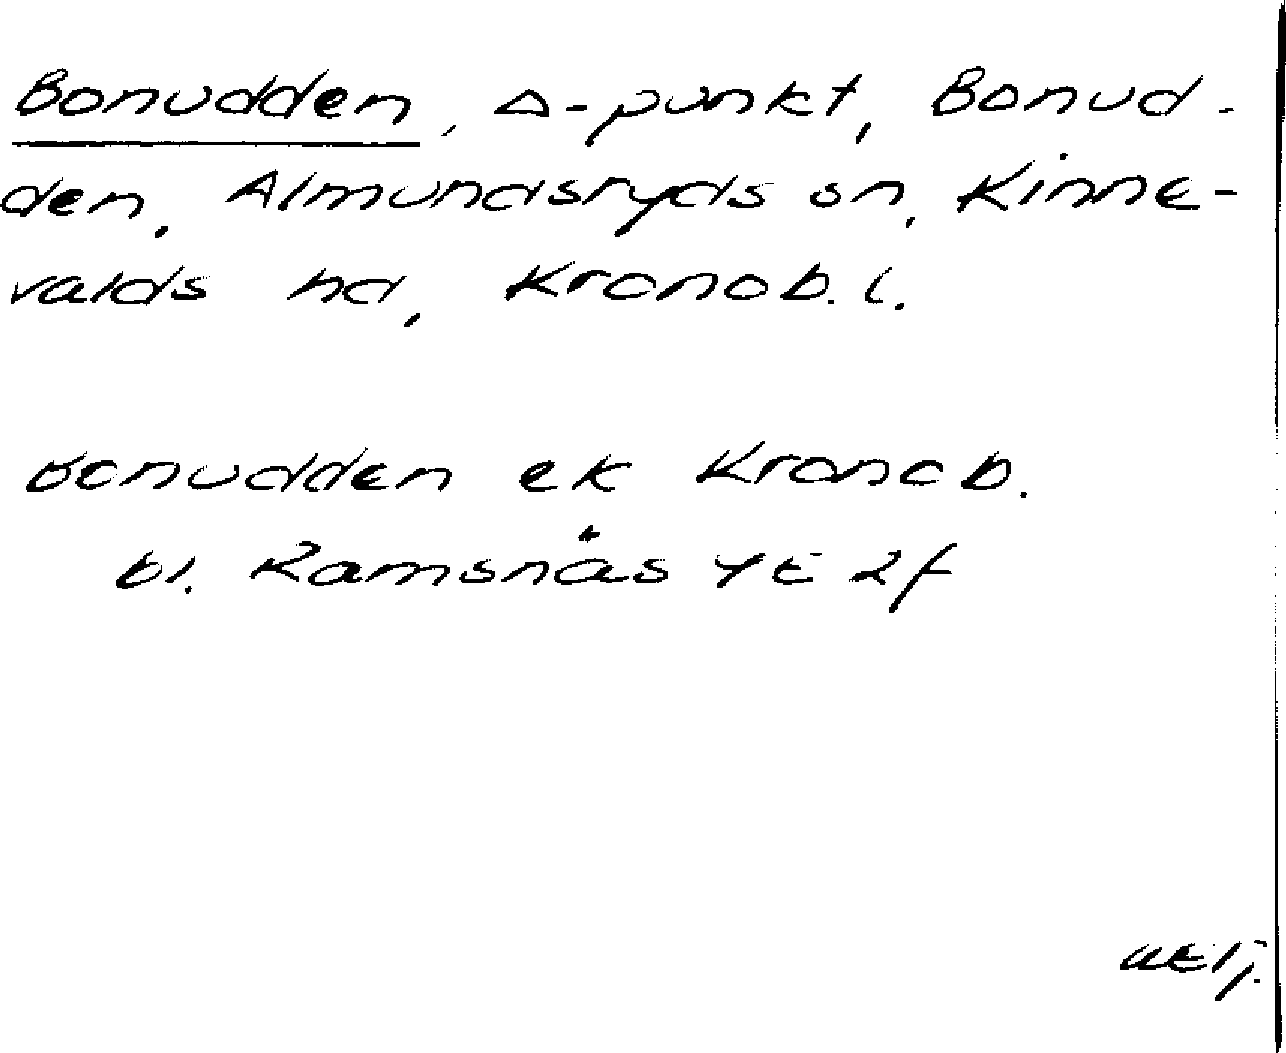 Bonudden, Δ-punkt, Bonud-
den, Almundsryds sn, Kinne-
valds hd, Kronob. l.
Bonudden ek Kronob.
bl. Ramsnäs 4E 2f